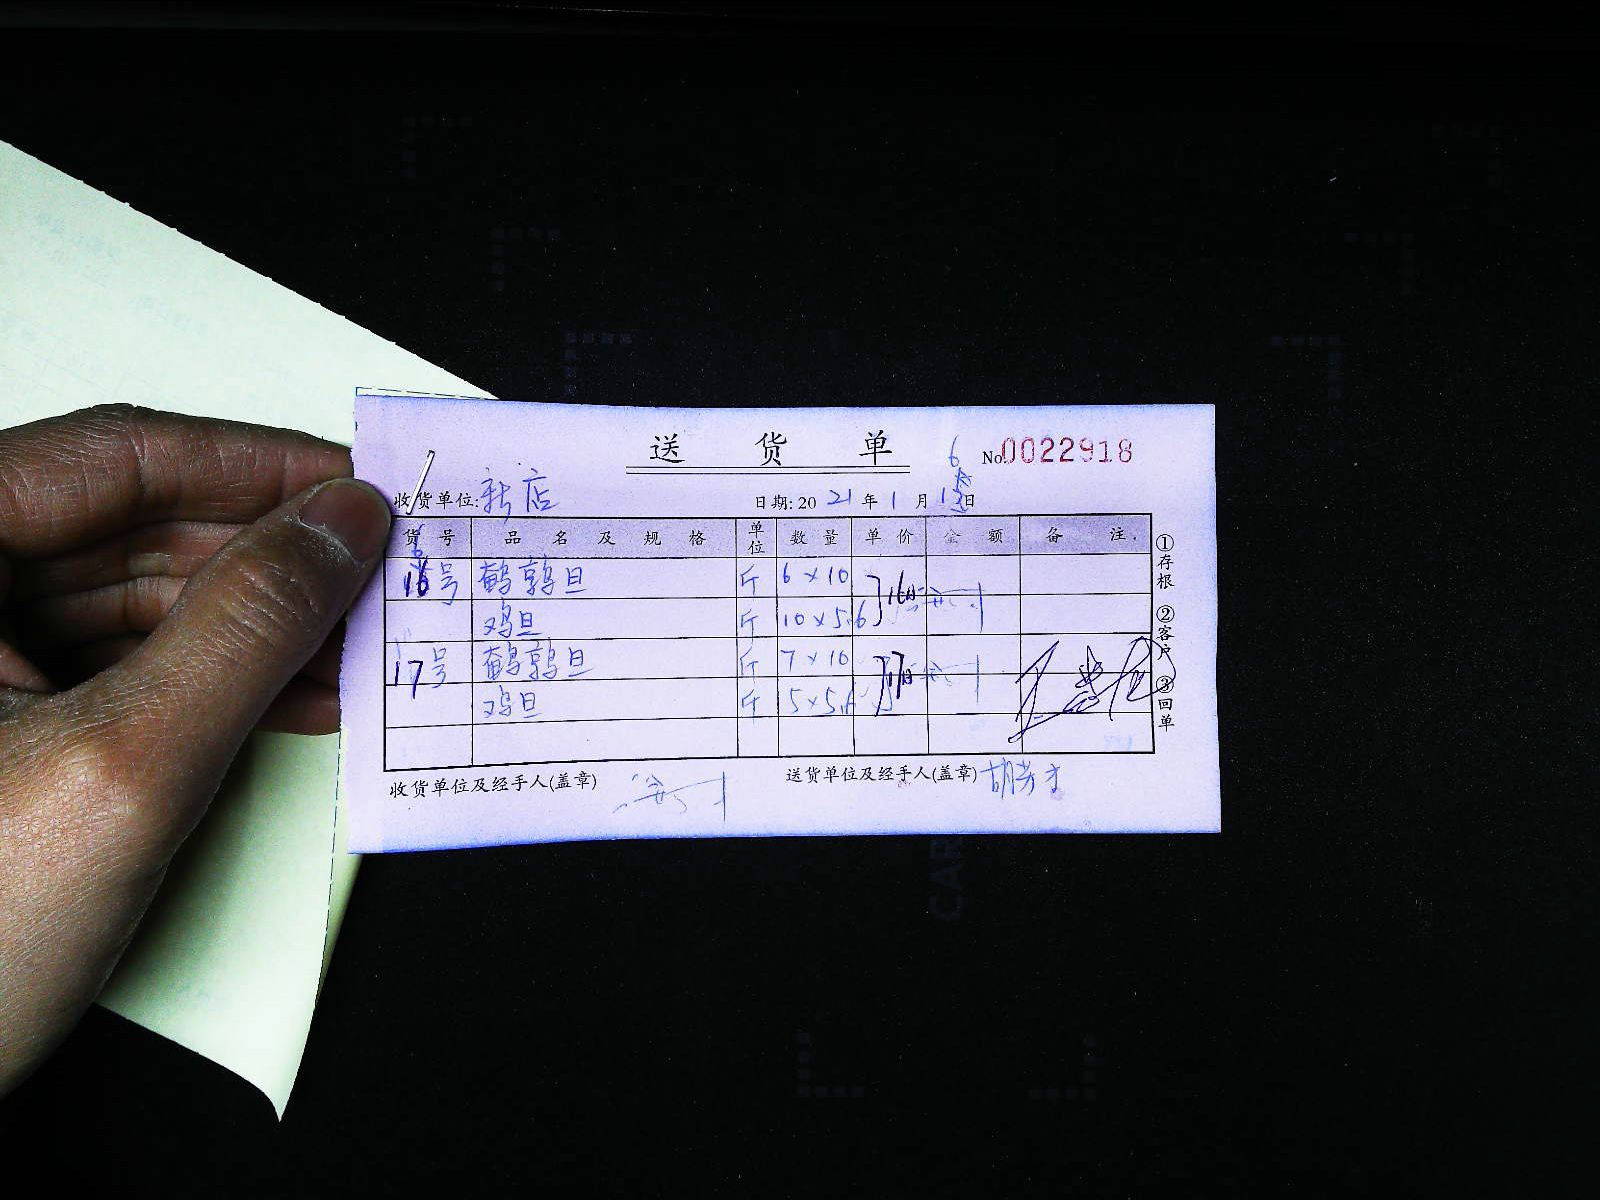 送 货 单
No.0022918
收货单位:新店 日期:2021年1月1日
货号 品名及规格 单位 数量 单价 金额 备注
16号 鹌鹑旦 斤 6×10 16日
鸡旦 斤 10×5.6
17号 鹌鹑旦 斤 7×10 17日
鸡旦 斤 5×5.6
收货单位及经手人(盖章) 送货单位及经手人(盖章)
①存根 ②客户 ③回单
CAR